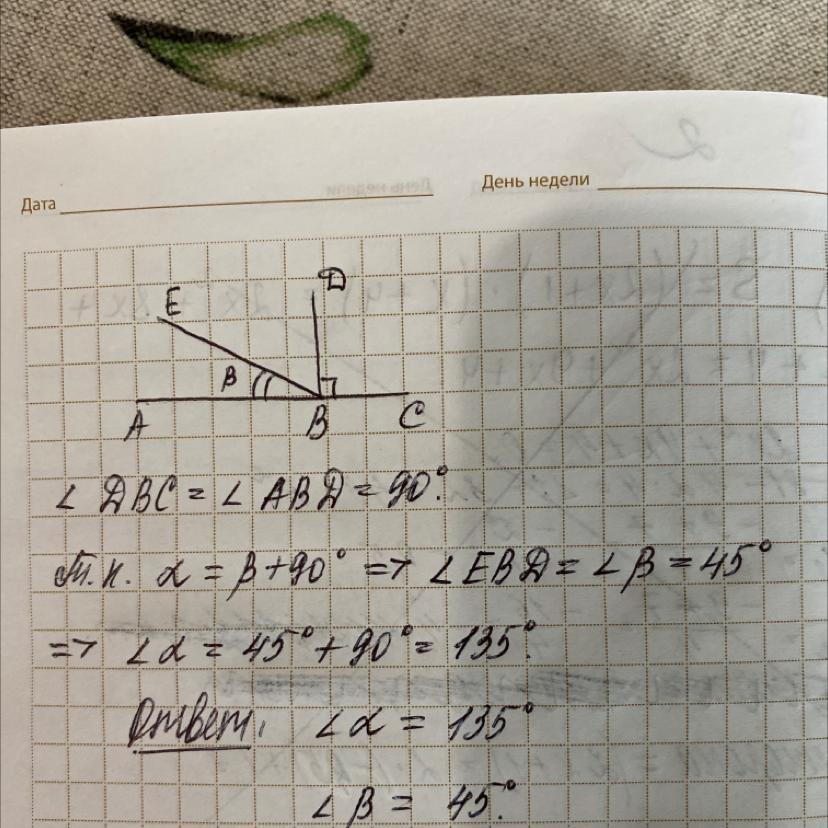 Дата
День недели
D
E
β
A
B
C
∠ DBC = ∠ ABD = 90°.
Т.к. α = β + 90° => ∠ EBD = ∠ β = 45°
=> ∠ α = 45° + 90° = 135°.
Ответ: ∠ α = 135°
∠ β = 45°.